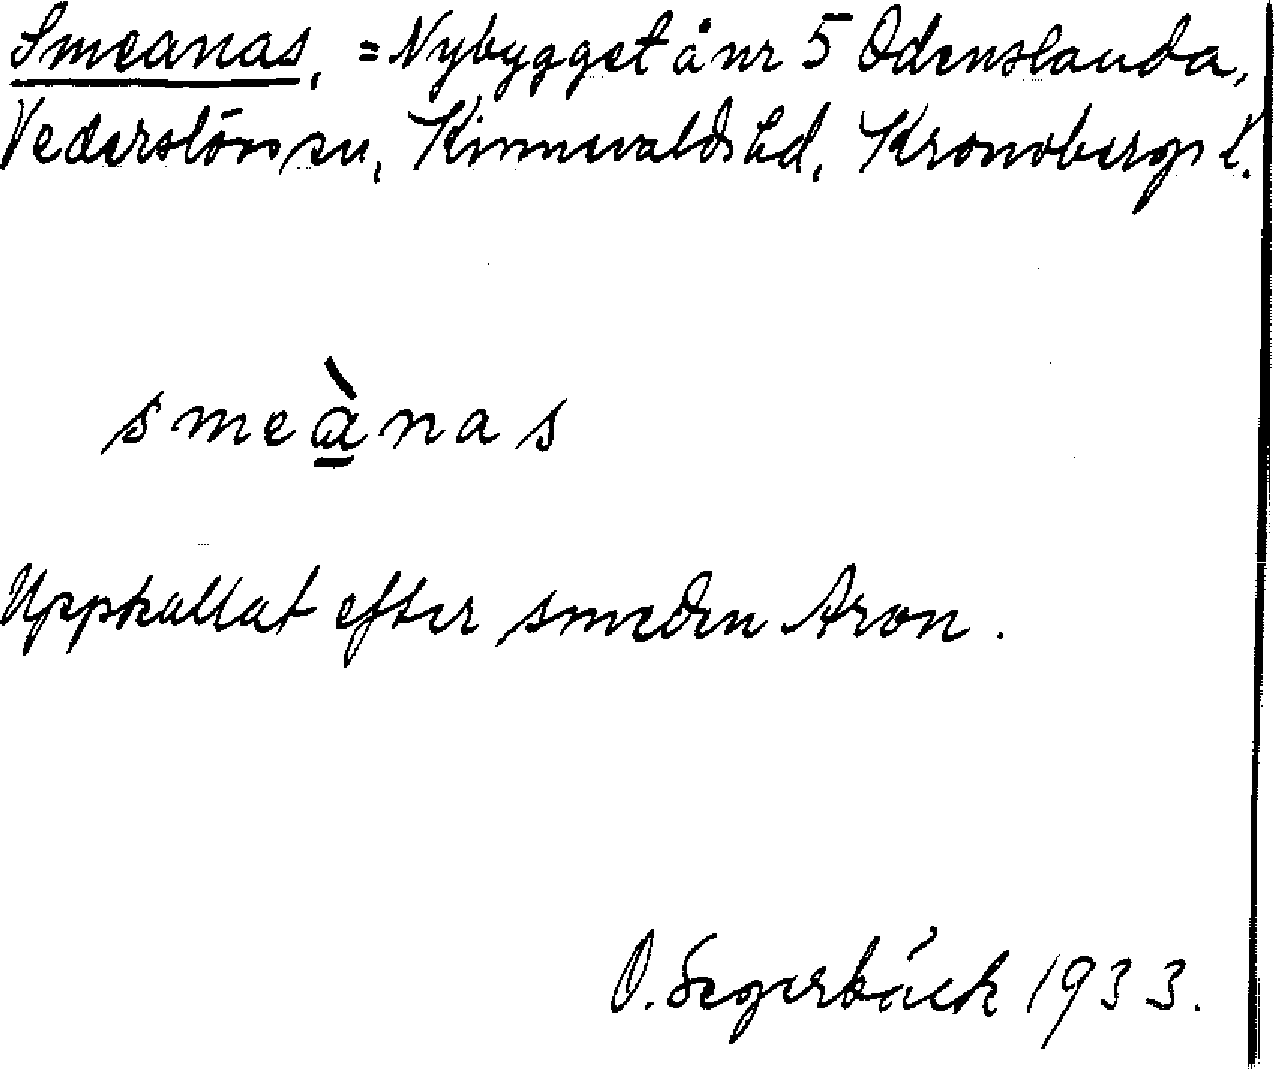 Smeanas, = Nybygget å nr 5 Odenslanda,
Vederslövs sn, Kinnevalds hd, Kronobergs l.
smeànas
Uppkallat efter smeden Aron.
O. Segerbäck 1933.